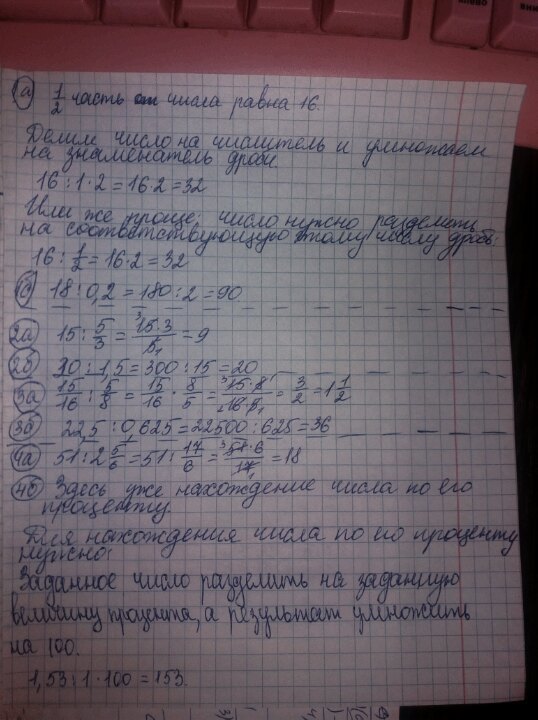 1а) 1/2 часть от числа равна 16.
Делим число на числитель и умножаем
на знаменатель дроби.
16 : 1 · 2 = 16 · 2 = 32
Или же проще, число нужно разделить
на соответствующую этому числу дробь:
16 : 1/2 = 16 · 2 = 32
18 : 0,2 = 180 : 2 = 90
2а) 15 : 5/3 = 15·3/5 = 9
2б) 30 : 1,5 = 300 : 15 = 20
3а) 15/16 : 5/8 = 15/16 · 8/5 = 15·8/16·5 = 3/2 = 1 1/2
3б) 22,5 : 0,625 = 22500 : 625 = 36
4а) 51 : 2 5/6 = 51 : 17/6 = 51·6/17 = 18
4б) Здесь уже нахождение числа по его
проценту.
Для нахождения числа по его проценту
нужно:
Заданное число разделить на заданную
величину процента, а результат умножить
на 100.
1,53 : 1 · 100 = 153.